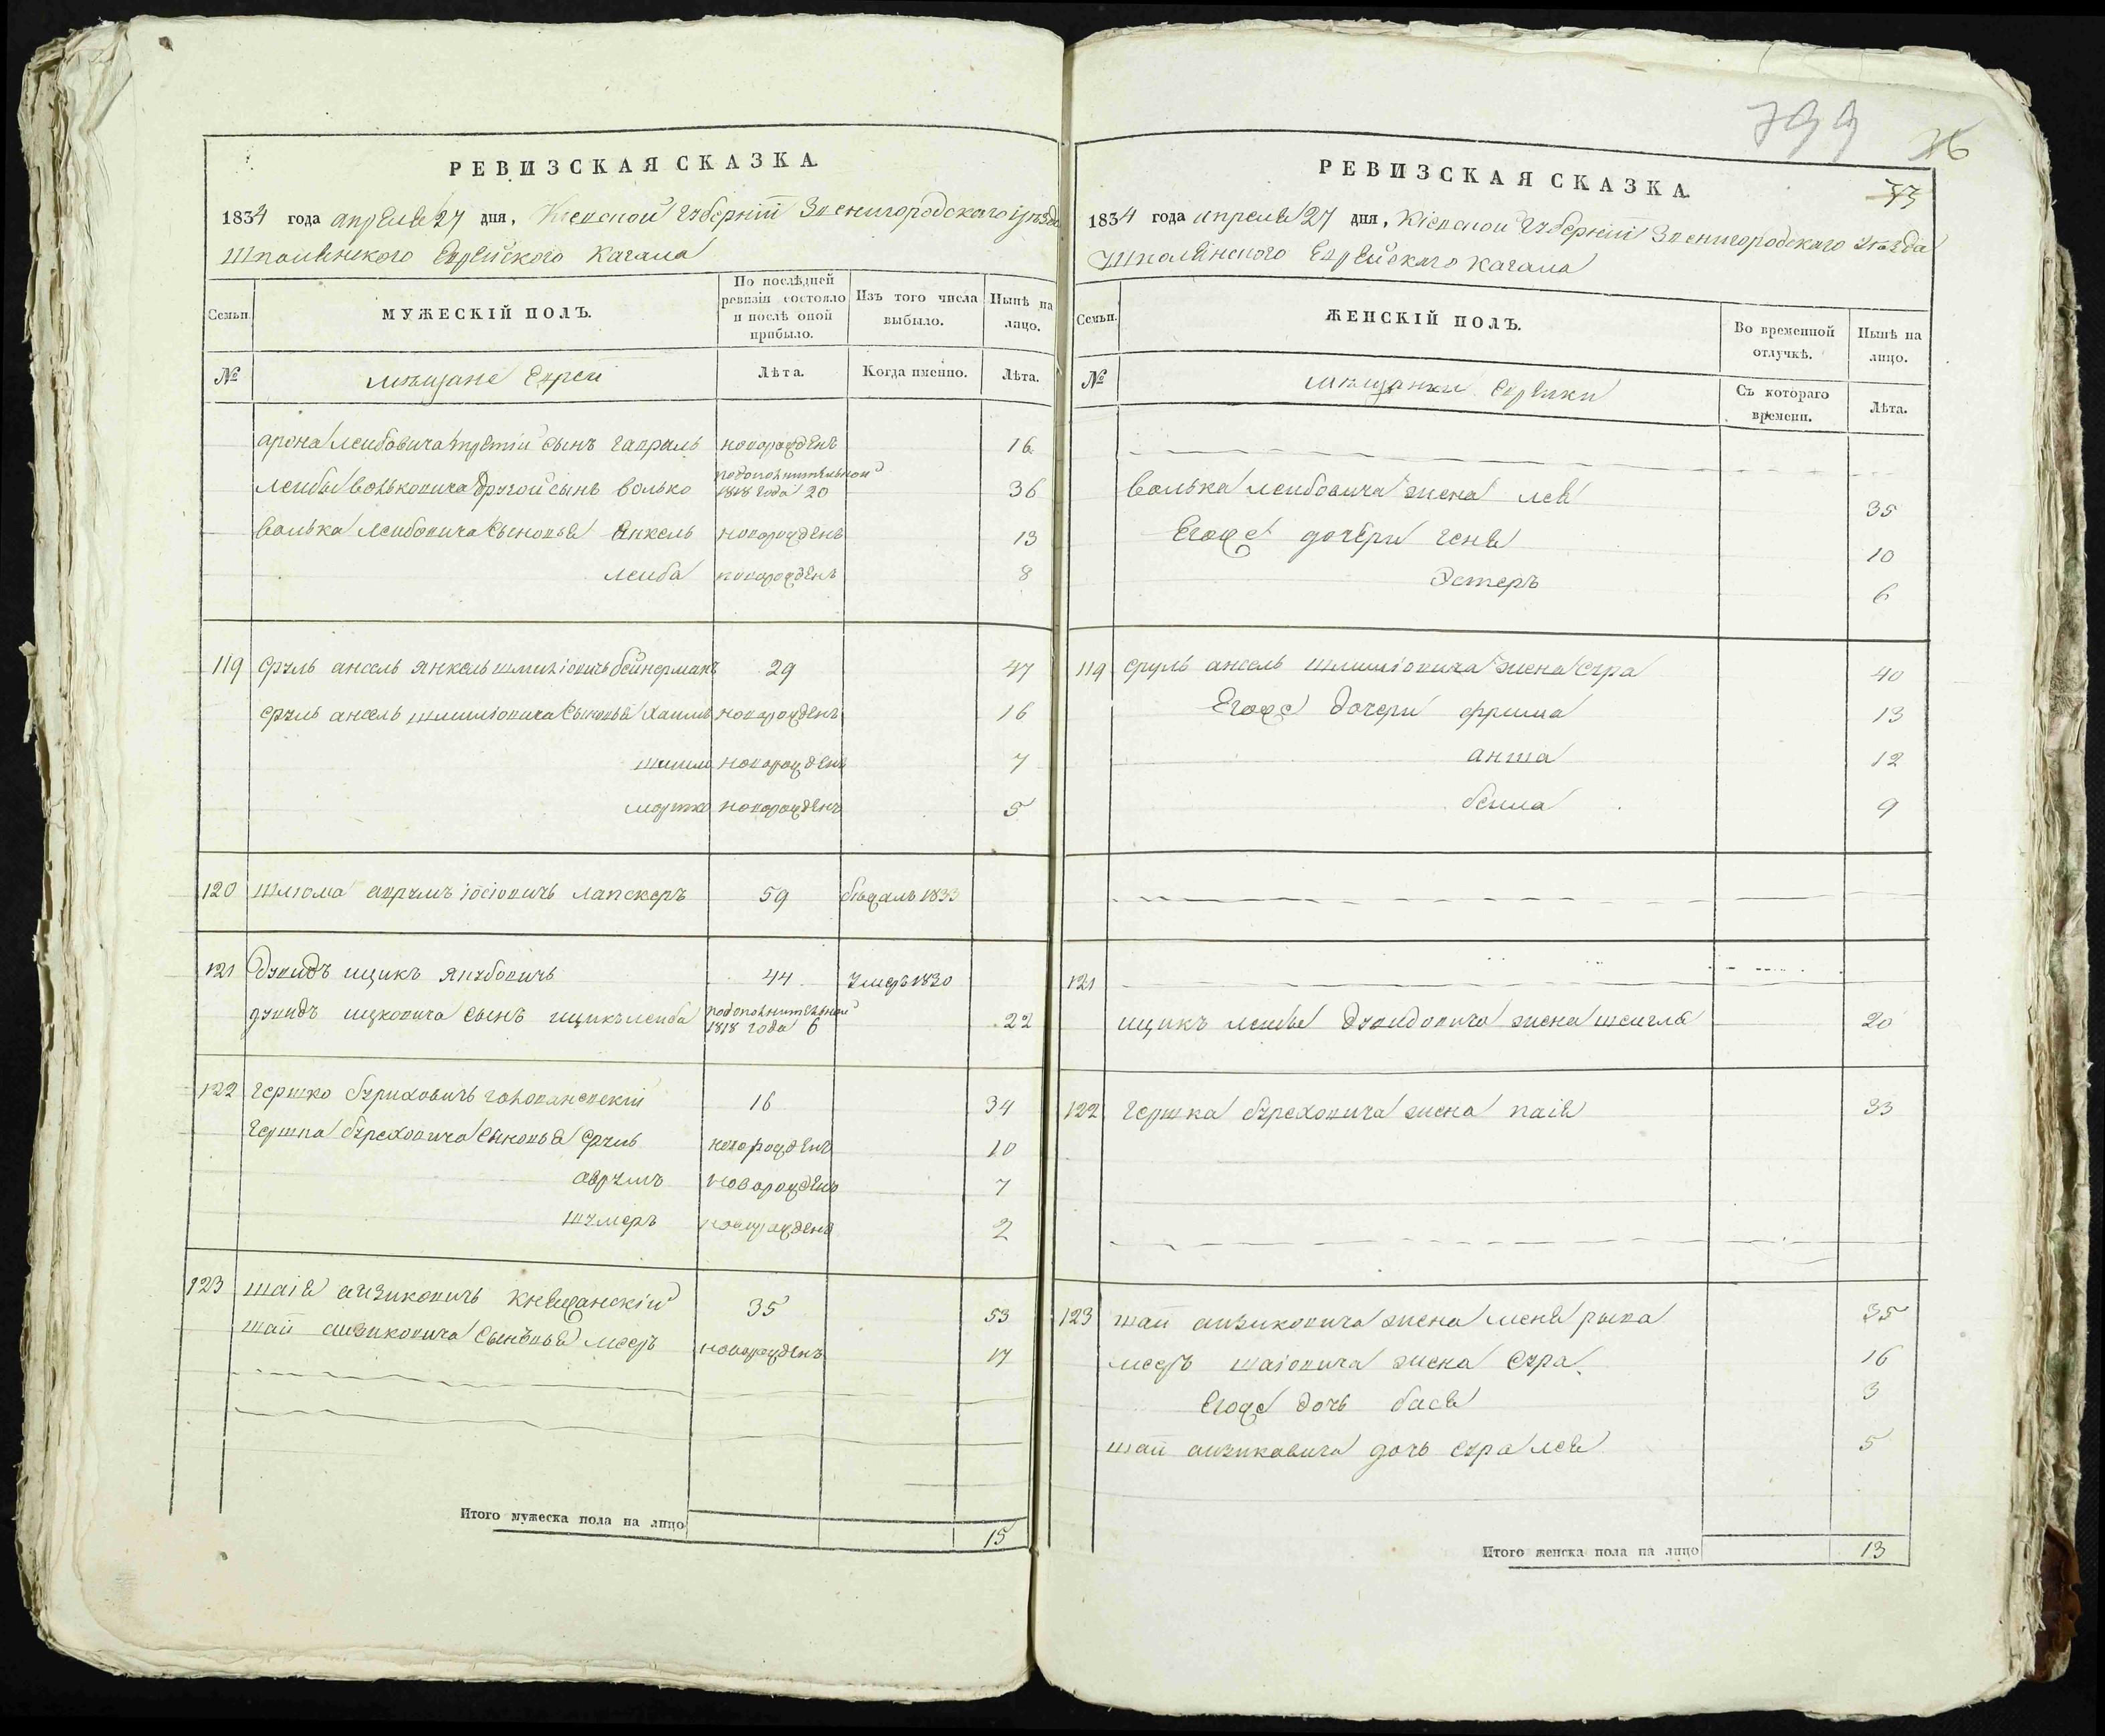 РЕВИЗСКАЯ СКАЗКА
1834 года апреля 27 дня, Кіевской Губерніи Звенигородского уѣзда
Шполянского Еврейского Кагала
Семьи.
МУЖЕСКІЙ ПОЛЪ.
По послѣдней ревизіи состояло и послѣ оной прибыло.
Изъ того числа выбыло.
Нынѣ на лицо.
№
мещане Евреи
Лѣта.
Когда именно.
Лѣта.
арона лейбовича третій сынъ гавриль новорожденъ 16
лейбы вольковича другой сынъ волько подополнительной 1818 года 20 36
волька лейбовича сыновья Янкель новорожденъ 13
лейба новорожденъ 8
119 сруль ансель Янкель шмилiовичъ бейнерманъ 29 47
сруль ансель шмилiовича сыновья хаимъ новорожденъ 16
шмиль новорожденъ 7
мортко новорожденъ 5
120 шлиома аврумъ іосіовичъ лапскеръ 59 бежалъ 1833
121 дувидъ ицикъ янубовичъ 44 умеръ 1830
дувидъ ицковича сынъ ицикъ лейба подополнительной 1818 года 6 22
122 гершко буриховичъ головановскій 16 34
гершка буреховича сыновья сруль новорожденъ 10
аврумъ новорожденъ 7
шумеръ новорожденъ 2
123 шаія айзиковичъ княжанскій 35 53
шаи айзиковича сыновья мееръ новорожденъ 17
Итого мужеска пола на лицо 15
799
76
73
РЕВИЗСКАЯ СКАЗКА
1834 года апреля 27 дня, Кіевской Губерніи Звенигородскаго уѣзда
Шполянского Еврейскаго кагала
Семьи.
ЖЕНСКІЙ ПОЛЪ.
Во временной отлучкѣ.
Нынѣ на лицо.
№
мещанки евреики
Съ котораго времени.
Лѣта.
волька лейбовича жена лея 35
Егоже дочери геня 10
Эстеръ 6
119 сруль ансель шмилiовича жена сура 40
Егоже дочери фрима 13
анта 12
бейла 9
121
ицикъ лейбы дувидовича жена шейгля 20
122 гершка буреховича жена паія 33
123 шаи айзиковича жена меня рыва 35
мееръ шаіовича жена сура 16
Егоже дочь бася 3
шаи айзиковича дочь сура лея 5
Итого женска пола на лицо 13